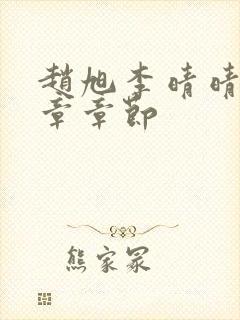 趙旭李晴晴
章章節
熊家冢